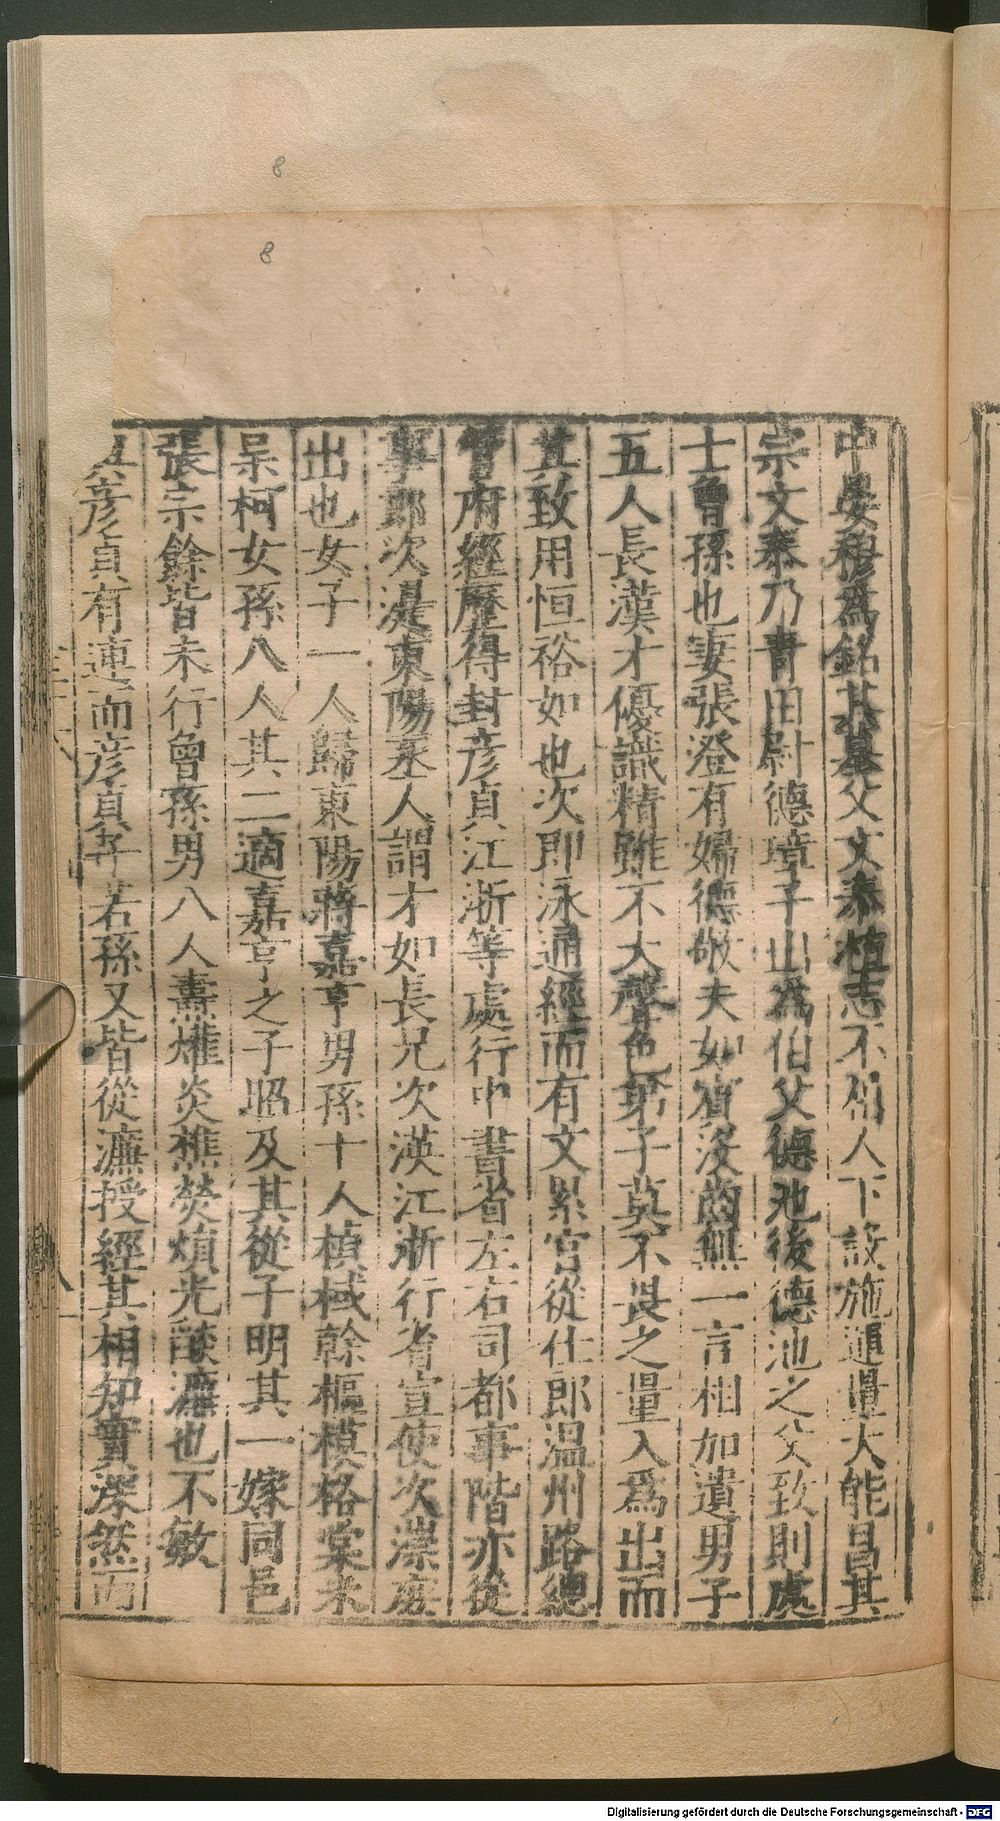 8
8
中晏穆爲銘其墓父文泰植志不徇人下設施逌量大能昌其
宗文泰乃青田尉德璋子出爲伯父德池後德池之父致則處
士曾孫也妻張澄有婦德敬夫如賓沒齒無一言相加遺男子
五人長漢才優識精雖不大聲色弟子莫不畏之量入爲出而
其致用恒裕如也次即泳通經而有文累官從仕郎温州路總
管府經歷得封彦貞江浙等處行中書省左右司都事階亦從
事郎次湜東陽丞人謂才如長兄次渶江浙行省宣使次漴庶
出也女子一人歸東陽蔣嘉亨男孫十人楨棫榦樞模格棠米
杲柯女孫八人其二適嘉亨之子昭及其從子明其一嫁同邑
張宗餘皆未行曾孫男八人燾爟炎樵熒熉光燄濂也不敏
與彦貞有連而彦貞子若孫又皆從濂授經其相知實深然而
Digitalisierung gefördert durch die Deutsche Forschungsgemeinschaft - DFG